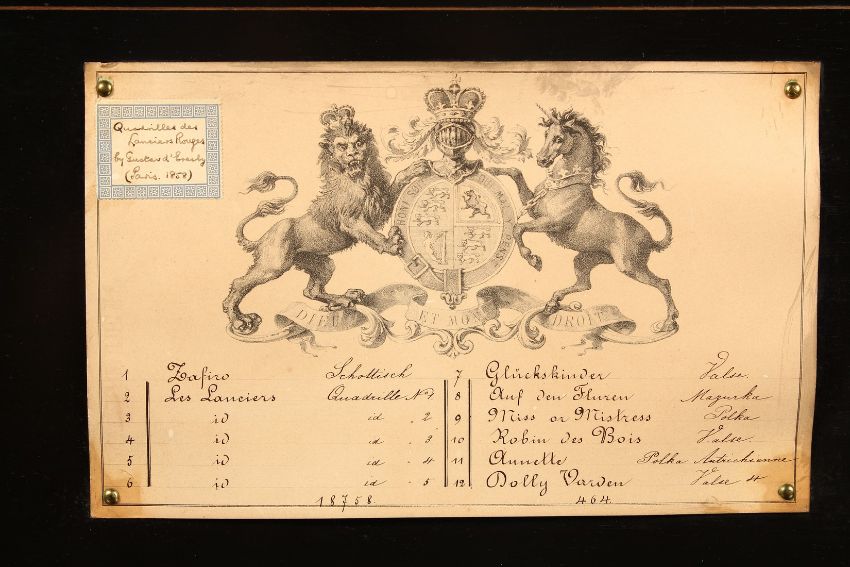 Quadrilles des
Lanciers Rouges
by Gustav d'
(Paris. 1858)
HONI SOI
MAL Y PENSE
DIEU ET MON DROIT
1 Zafiro Schottisch
2 Les Lanciers Quadrille No 1
3 id id „ 2
4 id id „ 3
5 id id „ 4
6 id id „ 5
7 Glückskinder Valse.
8 Auf den Fluren Mazurka
9 Miss or Mistress Polka
10 Robin des Bois Valse.
11 Annette Polka Autrichienne
12 Dolly Varden Valse 4
18758. 464.